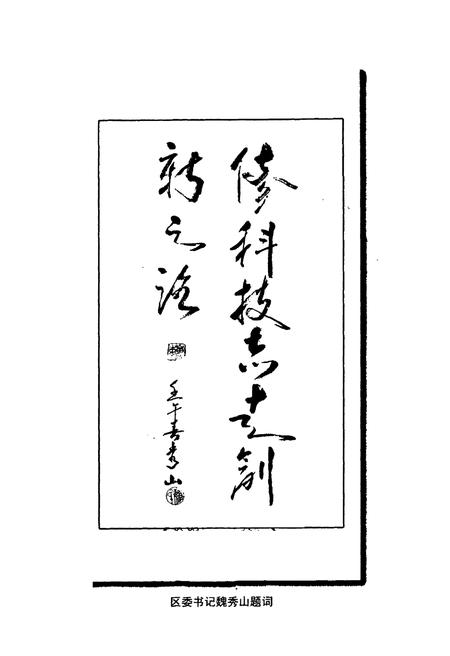 科技志走創
新之路
壬午 秀山
区委书记魏秀山题词